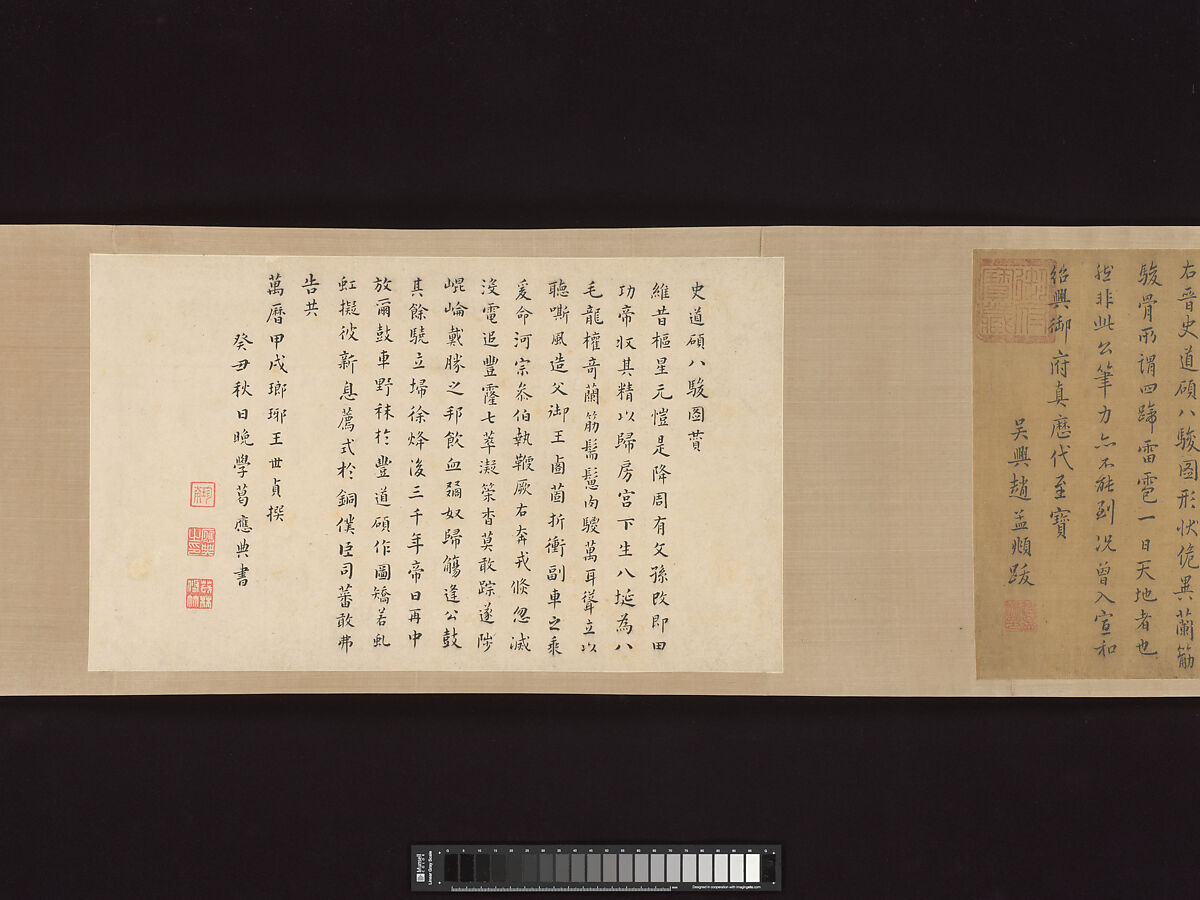 右晋史道碩八駿圖形狀佹異蘭筋
駿骨所謂四蹄雷雹一日天地者也
然非此公筆力亦不能到況曾入宣和
紹興御府真歷代至寶
吳興趙孟頫跋
史道碩八駿圖贊
維昔樞星元愷是降周有文孫改即田
功帝收其精以歸房宮下生八埏為八
毛龍權奇蘭筋鬣鬉肉騣萬耳聳立以
聽嘶風造父御王鹵箘折衝副車之乘
爰命河宗叅伯執鞭厥右奔戎倏忽滅
沒電追豐霳七萃凝筞杳莫敢踪遂陟
崐崘戴勝之邦飲血黐奴歸觴逢公鼓
其餘驍立埽徐烽後三千年帝日再中
放爾鼓車野秣於豐道碩作圖矯若虬
虹擬彼新息薦式於銅僕臣司蕃敢弗
告共
萬曆甲戌瑯琊王世貞撰
癸丑秋日晚學葛應典書